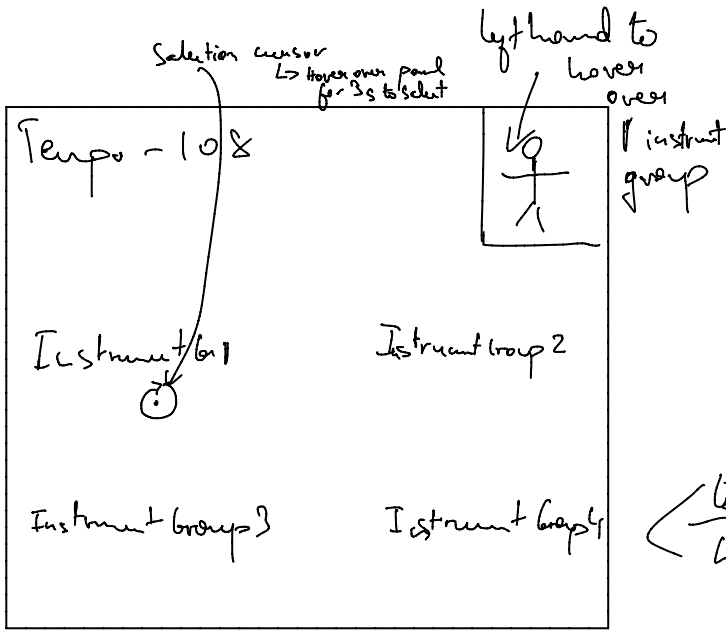 Selection cursor
↳ Hover over panel
for 3s to select
left hand to
hover
over
1 instrument
group
Tempo - 108
Instrument Gr1
Instrument Group 2
Instrument Group 3
Instrument Group 4